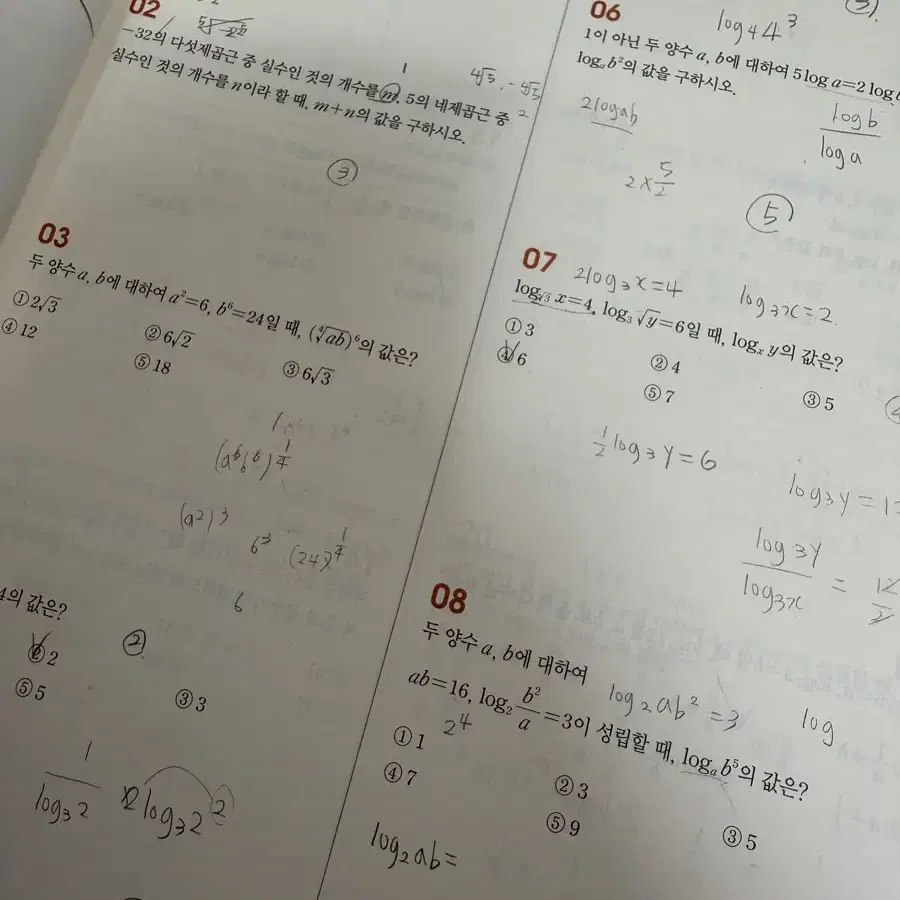 02
-32의 다섯제곱근 중 실수인 것의 개수를 m, 5의 네제곱근 중
실수인 것의 개수를 n이라 할 때, m+n의 값을 구하시오.
1
∜5, -∜5
2
③
03
두 양수 a, b에 대하여 a²=6, b⁶=24일 때, (∜ab)⁶의 값은?
① 2√3
② 6√2
③ 6√3
④ 12
⑤ 18
(a⁶b⁶)^(1/4)
(a²)³
6³ (24)^(1/4)
6
4의 값은?
② 2
③ 3
⑤ 5
②
1/log₃2
2log₃2²
06
log₄4³
1이 아닌 두 양수 a, b에 대하여 5 log a=2 log b
logₐ b²의 값을 구하시오.
2logab
log b/log a
2×5/2
⑤
07
2log₃x=4
log₃x=2
log_√3 x=4, log₃ √y=6일 때, logₓ y의 값은?
① 3
② 4
③ 5
④ 6
⑤ 7
1/2 log₃y=6
log₃y=12
log₃y/log₃x = 12/2
08
두 양수 a, b에 대하여
log₂ab²=3
log
ab=16, log₂ b²/a=3이 성립할 때, logₐ b⁵의 값은?
2⁴
① 1
② 3
③ 5
④ 7
⑤ 9
log₂ab=